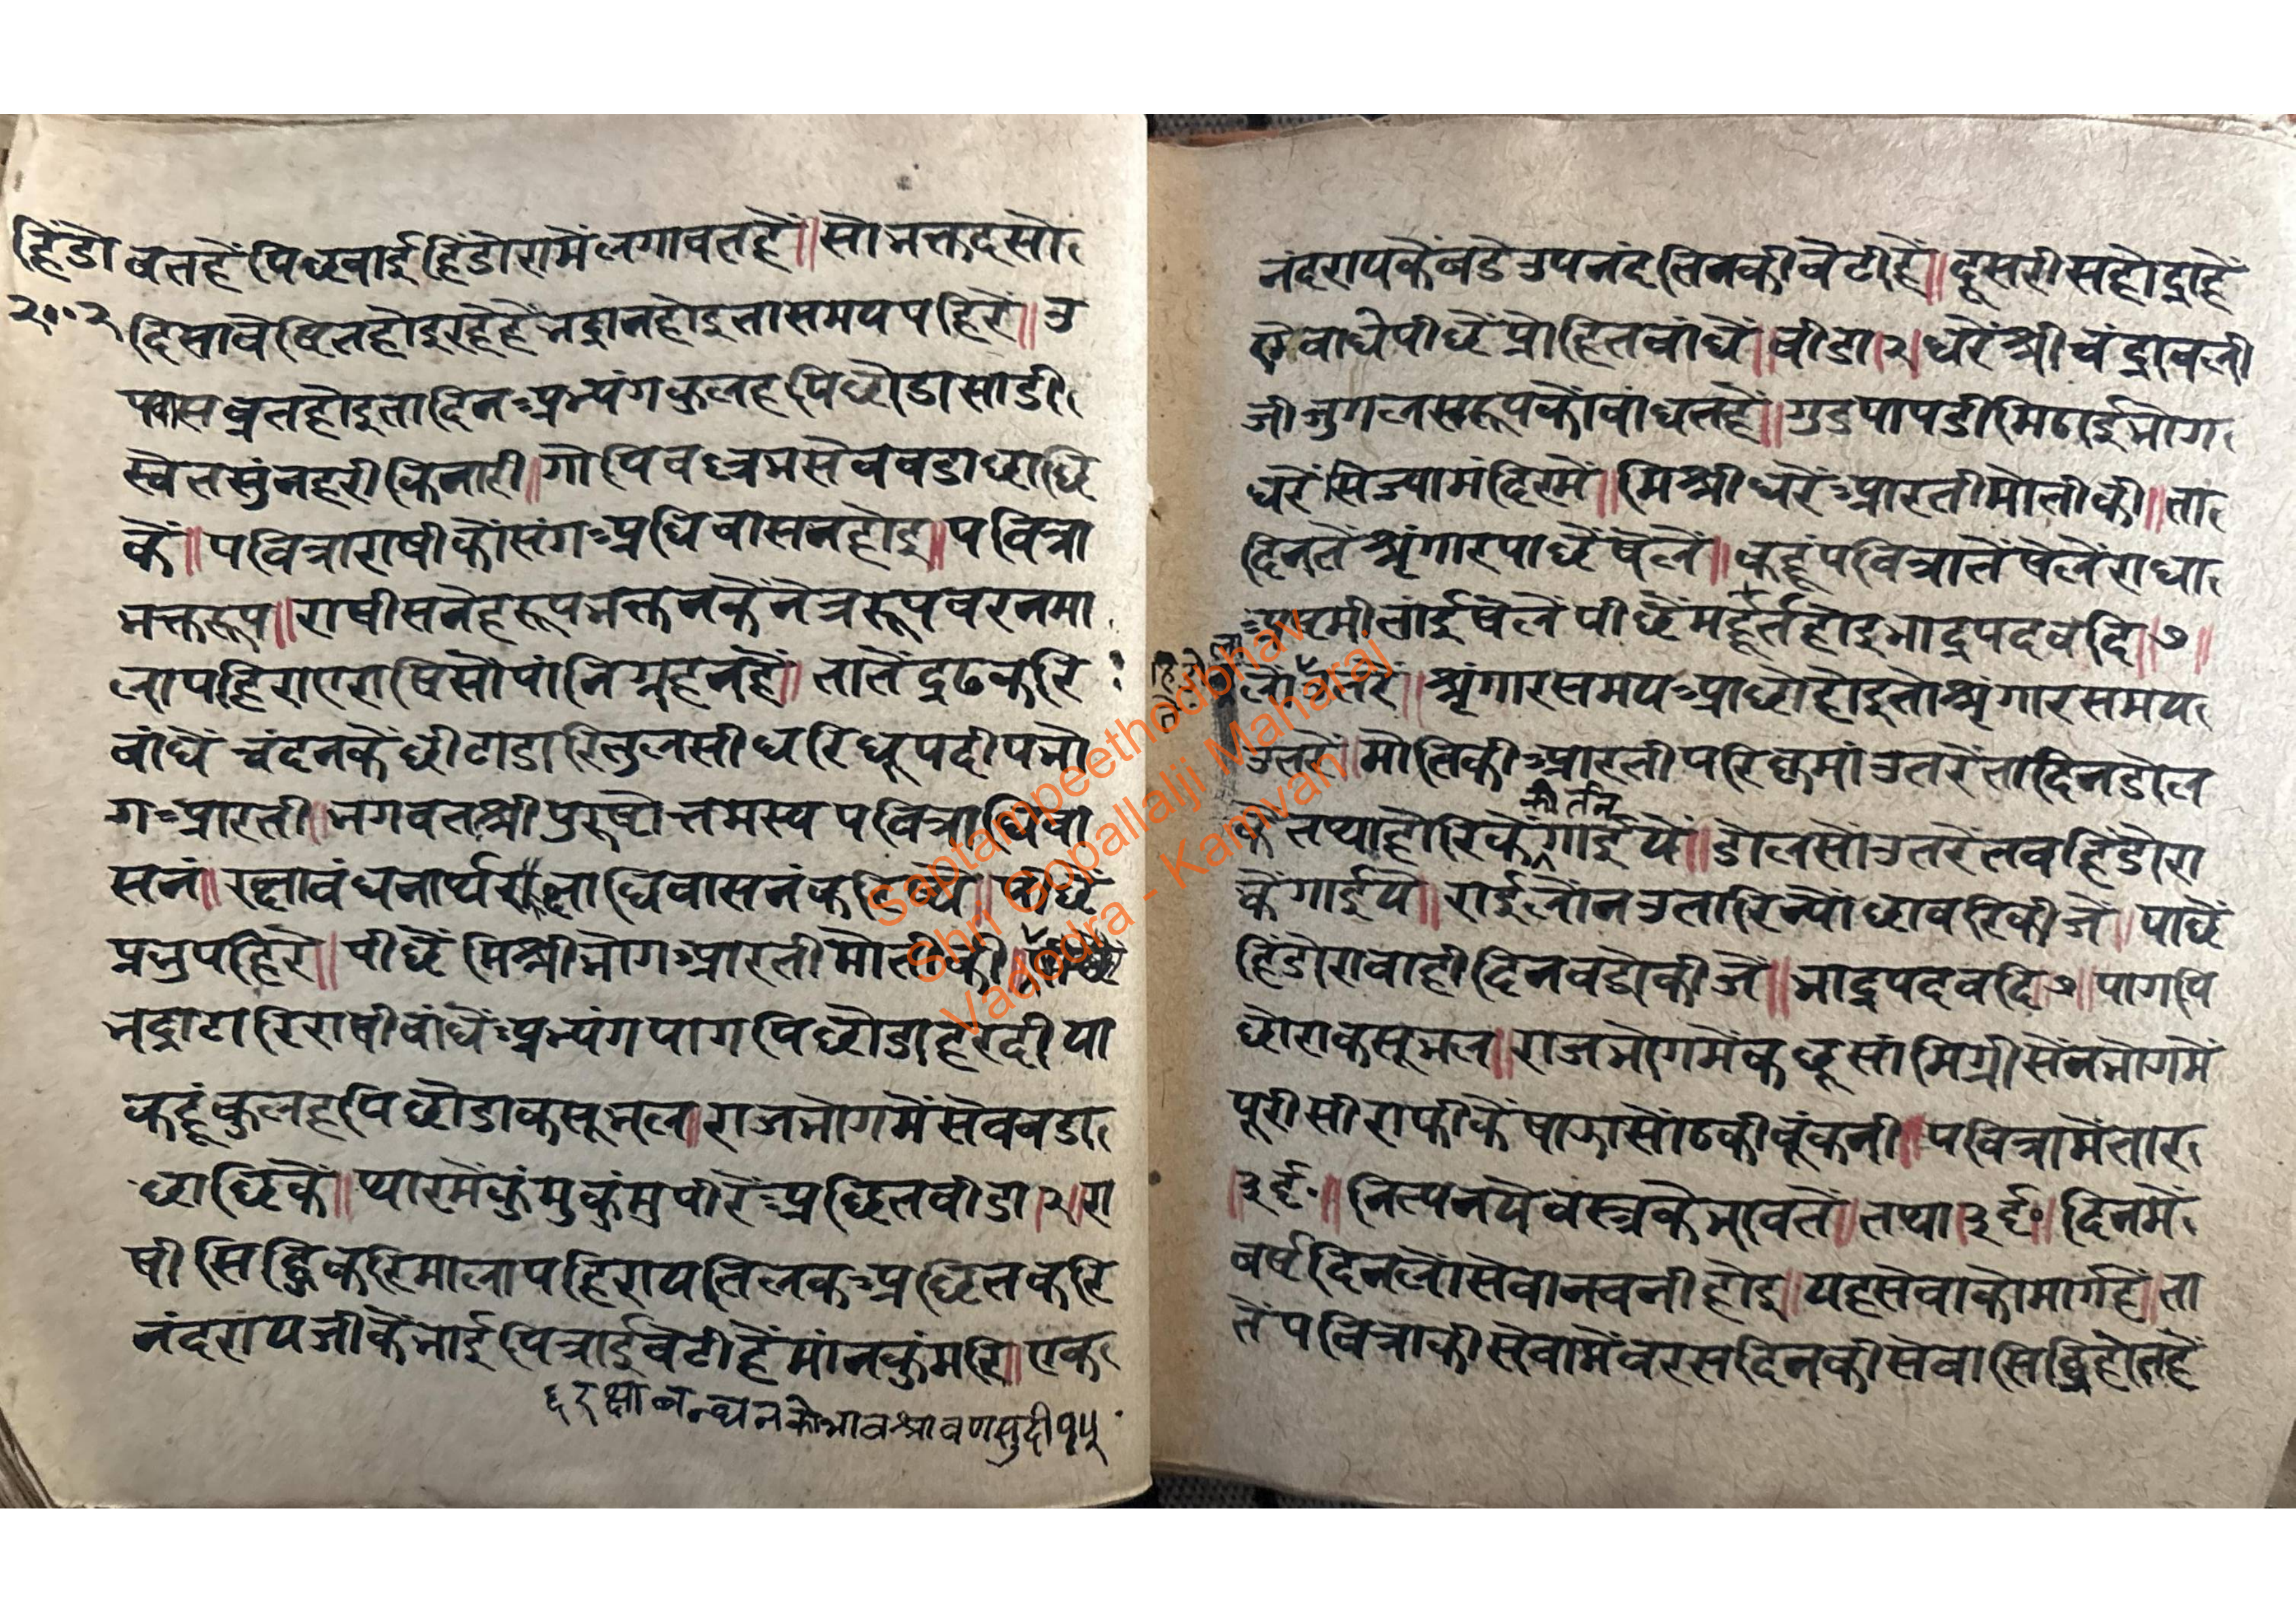 हिंडो
२००२
वतहैंपिछवाईहिंडोरामेंलगावतहैं॥सोभक्तदसो
दिसावेष्टितहोइरहेहैंभद्रानहोइतासमयपहिरें॥उ
पवासव्रतहोइतादिनअभ्यंगकुलहपिछोडासाडी
स्वेतसुंनहरीकिनारी॥गोपिवल्लभसेवबडाछाछि
कें॥पवित्राराषीकोंसंगअधिवासनहोइ॥पवित्रा
भक्तरूप॥राषीसनेहरूपभक्तनकेनेत्ररूपवरनमा
लापहिराएराषिसोपांनिग्रहनहैं॥तातेंद्रढकरि
बांधें चंदनकेंछीटाडारितुलसीधरिधूपदीपभो
गआरती॥भगवतश्रीपुरुषोत्तमस्यपवित्राधिवा
सनं॥रक्षाबंधनार्थर
प्रभुपहिरें॥पीछेंमिश्रीभोगआरतीमोतीकी॥
भद्राटारिराषीबांधेंअभ्यंगपागपिछोडाहरदीया
कहूंकुलहपिछोडाकसूभल॥राजभोगमेंसेवबडा
छाछिकें॥थारमेंकुंमुकुंमुपीरेंअछितबीडा।२।रा
षीसिद्धिकरिमालापहिरायतिलकअछितकरि
नंदरायजीकेंभाईपित्राईबेटीहैंमांनकुंमरि॥एक
६ रक्षाबन्धनकोभावश्रावणसुदी१५
नंदरायकेंबडेउपनंदतिनकीबेटीहें॥दूसरीसहोद्राहें
वांधेपीछेंप्रोहितबांधें॥बीडा।२।धरेंश्रीचंद्रावली
जीजुगलस्वरूपकोंबांधतहैं॥गुडपापडीमिठाईभोग
धरेंसिज्यामंदिरमें॥मिश्रीधरेंआरतीमोतीकी॥ता
दिनतेंश्रृंगारपाछेंषेलें॥कहूंपवित्रातेंषेलेंराधा
अष्टमीतांईषेलेंपीछेंमहूर्तहोइभाद्रपदवदि॥७॥
श्रृंगारसमयआछोहोइतोश्रृंगारसमय
उतरें॥मोतिकीआरतीपरिक्रमांउतरेंतादिनडोल
कीर्तन
केतथाहोरिकेंगाईयें॥डोलसोंउतरेतबहिंडोरा
केंगाईयें॥राईलोंनउतारिन्योंछावरिकीजें॥पाछें
हिंडोरावाहीदिनबडोकीजें॥भाद्रपदवदि७॥पागपि
छोराकसूभल॥राजभोगमेंकछूसांमिग्रीसेंनभोगमें
पूरीसीराफीकेंषाजासोंठकीबूंकनी॥पवित्रामेंतार
॥३६०॥नित्यनयेवस्त्रकेभावतें॥तथा।३६०॥दिनमें
वर्षदिनलोंसेवानवनीहोइ॥यहसेवाकोमार्गहें॥ता
तेंपवित्राकीसेवामेंवरसदिनकीसेवासिद्धिहोतहें
Saptampeethodbhav
Shri Gopallalji Maharaj
Vadodra - Kamvan